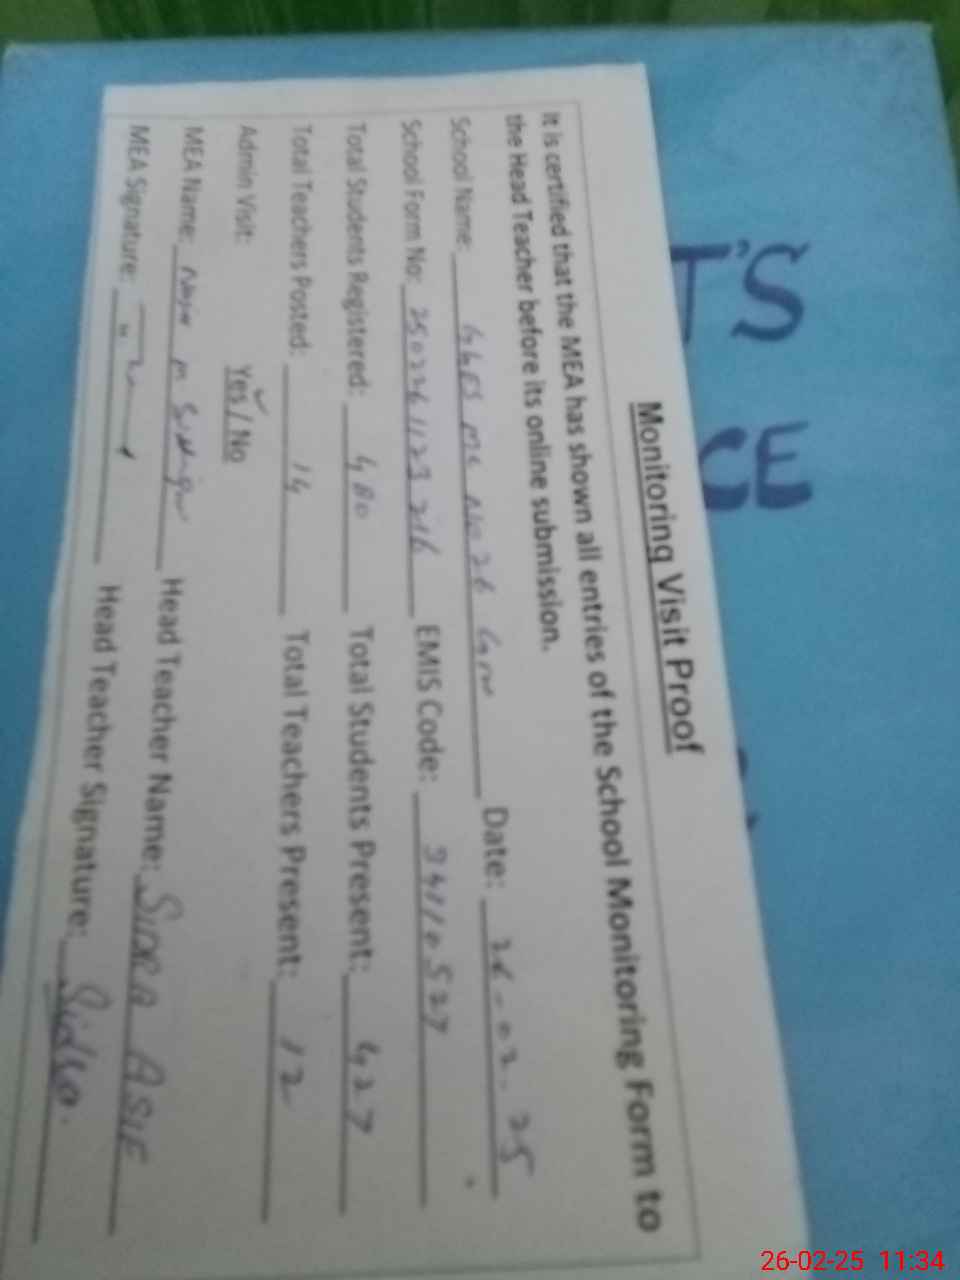 Monitoring Visit Proof
It is certified that the MEA has shown all entries of the School Monitoring Form to
the Head Teacher before its online submission.
School Name: GGES MC No 26 Date: 26-02-25
School Form No: 2502261123216 EMIS Code: 34110527
Total Students Registered: 480 Total Students Present: 427
Total Teachers Posted: 14 Total Teachers Present: 12
Admin Visit: Yes / No
MEA Name: Head Teacher Name: SIDRA ASIF
MEA Signature: Head Teacher Signature: Sidra.
26-02-25 11:34